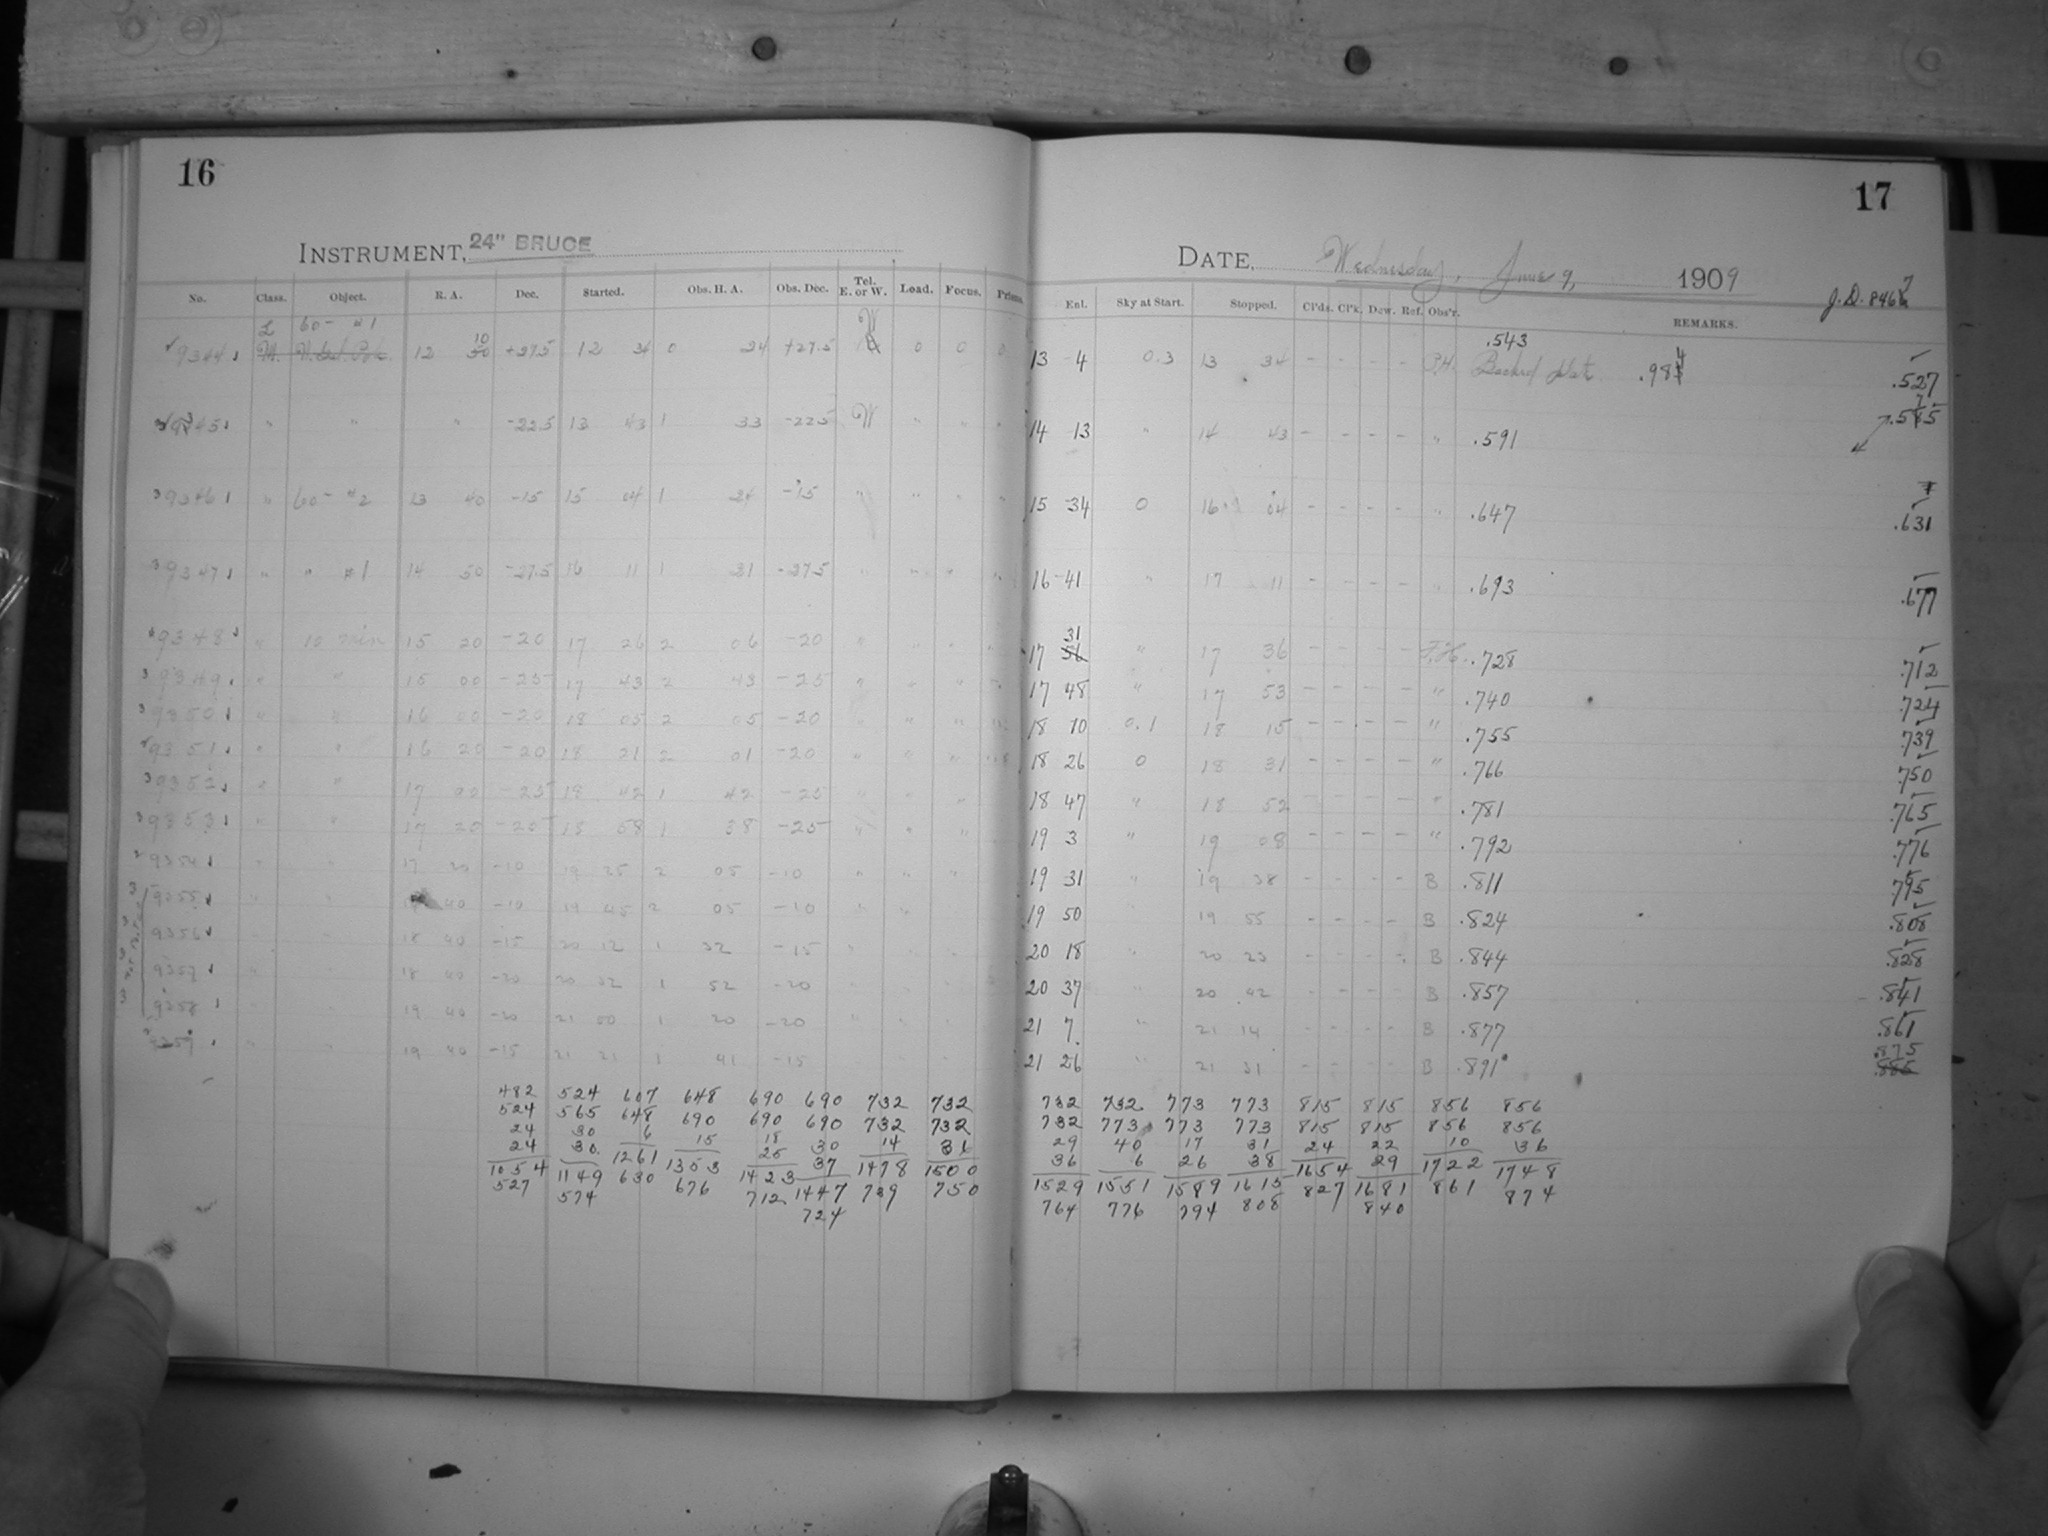 16
17
INSTRUMENT, 24" BRUCE
DATE, Wednesday, June 9, 1909
J.D. 8467
No. Class. Object. R. A. Dec. Started. Obs. H. A. Obs. Dec. Tel. E. or W. Load. Focus. Prisms. Enl. Sky at Start. Stopped. Cl'ds. Cl'k. Dew. Ref. Obs'r. REMARKS.
L 60- #1 10 W .543
9344 12 +27.5 12 34 0 24 +27.5 0 0 0 13 4 0.3 13 34 - - - - .984 .527
9345 " " " -22.5 13 43 1 33 -22.5 W " " " 14 13 " 14 43 - - - - " .591 .575
9346 " 60- #2 13 40 -15 15 04 1 24 -15 " " " " 15 34 0 16 04 - - - - " .647 .631
9347 " " #1 14 50 -27.5 16 11 1 21 -27.5 " " " " 16 41 " 17 11 - - - - " .693 .677
9348 " 10 min 15 20 -20 17 26 2 06 -20 " " " " 17 31 " 17 36 - - - - F.H. .728 .712
9349 " " 15 00 -25 17 43 2 43 -25 " " " 17 48 " 17 53 - - - - " .740 .724
9350 " " 16 00 -20 18 05 2 05 -20 " " " 18 10 0.1 18 15 - - - - " .755 .739
9351 " " 16 20 -20 18 21 2 01 -20 " " " 18 26 0 18 31 - - - - " .766 .750
9352 " " 17 00 -25 18 42 1 42 -25 " " " 18 47 " 18 52 - - - - " .781 .765
9353 " " 17 20 -25 18 58 1 38 -25 " " " 19 3 " 19 08 - - - - " .792 .776
9354 " " 17 20 -10 19 25 2 05 -10 " " " 19 31 " 19 38 - - - - B .811 .795
9355 " " 40 -10 19 45 2 05 -10 " " 19 50 19 55 - - - - B .824 .808
9356 18 40 -15 20 12 1 32 -15 " 20 18 " 20 23 - - - - B .844 .828
9357 " 18 40 -20 20 32 1 52 -20 20 37 " 20 42 - - - - B .857 .841
9358 19 40 -20 21 00 1 20 -20 21 7 " 21 14 - - - - B .877 .861
9359 " 19 40 -15 21 21 1 41 -15 21 26 " 21 31 - - - - B .891 .875
482 524 607 648 690 690 732 732 732 732 773 773 815 815 856 856
524 565 648 690 690 690 732 732 732 773 773 773 815 815 856 856
24 30 6 15 18 30 14 31 29 40 17 31 24 22 10 36
24 30 1261 1353 25 37 1478 1500 36 6 26 38 1654 29 1722 1748
1054 1149 630 676 1423 1447 739 750 1529 1551 1589 1615 827 1681 861 874
527 574 712 724 764 776 794 808 840